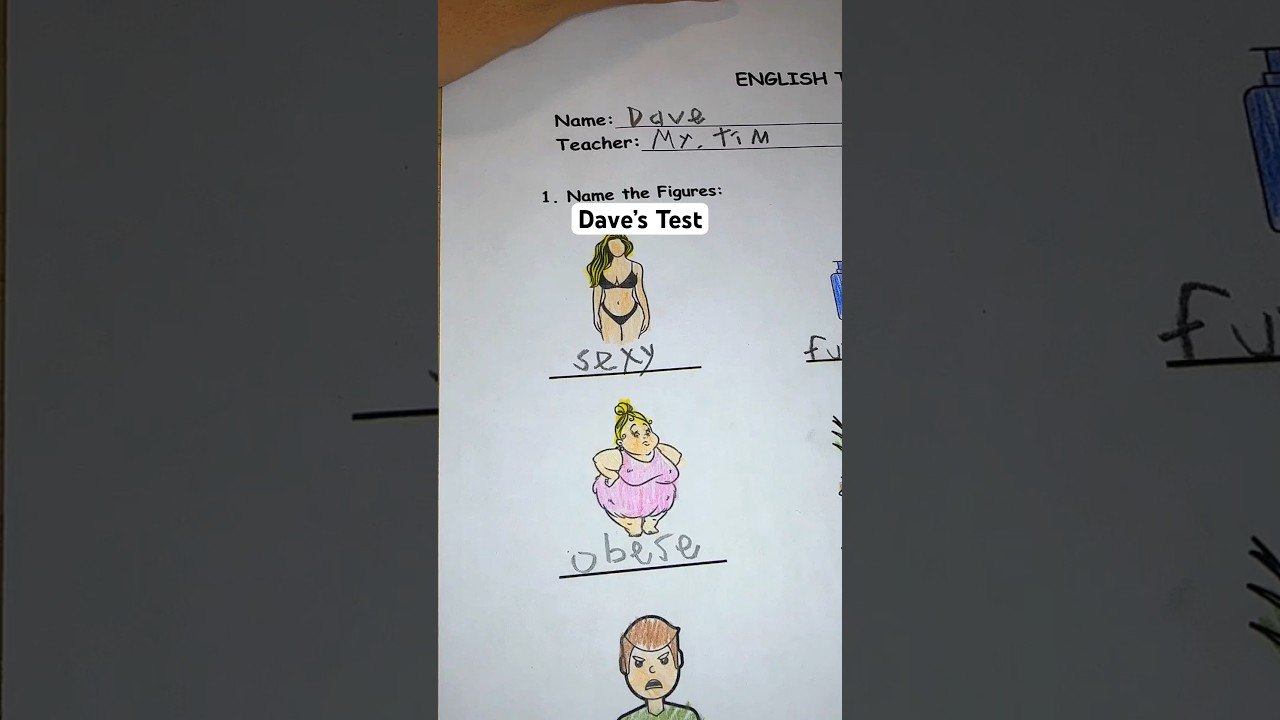 ENGLISH
Name: Dave
Teacher: Mr. Tim
1. Name the Figures:
Dave's Test
sexy
obese